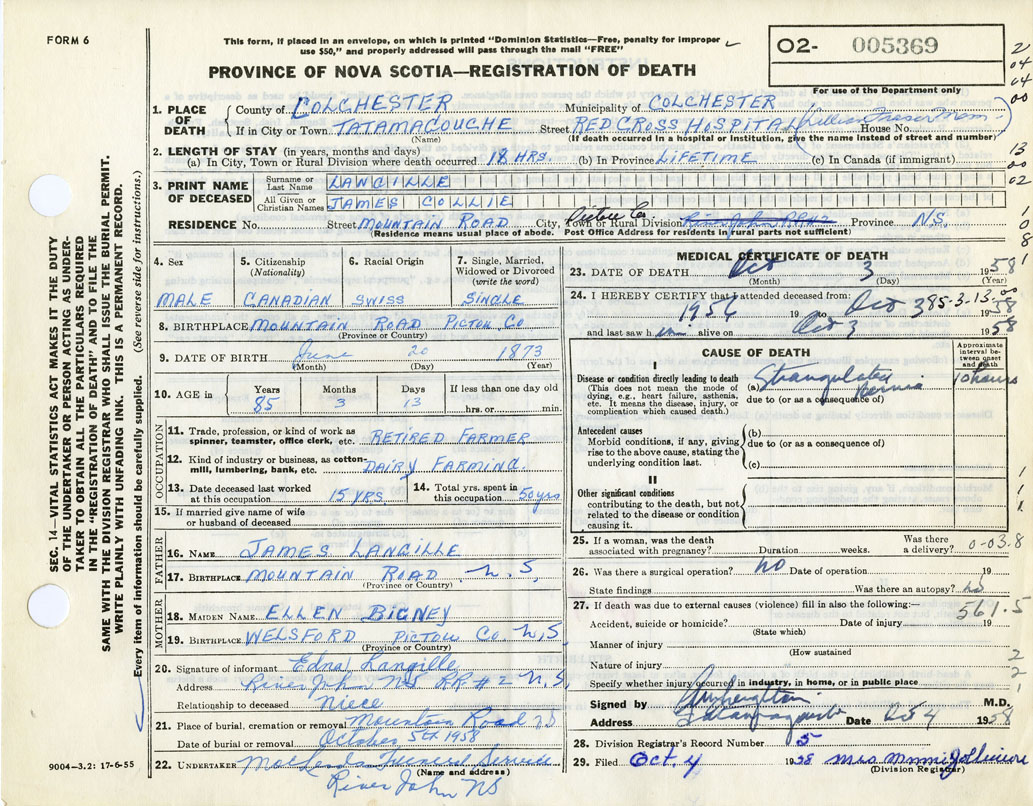 FORM 6
This form, if placed in an envelope, on which is printed "Dominion Statistics—Free, penalty for improper
use $50," and properly addressed will pass through the mail "FREE"
PROVINCE OF NOVA SCOTIA—REGISTRATION OF DEATH
O2- 005369
For use of the Department only
2
04
04
00
13
00
02
1
0
8
1. PLACE OF DEATH
County of COLCHESTER Municipality of COLCHESTER
If in City or Town TATAMAGOUCHE Street RED CROSS HOSPITAL (Lillian Fraser Mem-) House No.
(Name) (If death occurred in a hospital or institution, give the name instead of street and number)
2. LENGTH OF STAY (in years, months and days)
(a) In City, Town or Rural Division where death occurred 18 HRS. (b) In Province LIFETIME (c) In Canada (if immigrant)
3. PRINT NAME OF DECEASED
Surname or Last Name LANGILLE
All Given or Christian Names JAMES COLLIE
RESIDENCE No. Street MOUNTAIN ROAD City, Town or Rural Division Pictou Co River John RR#2 Province N.S.
(Residence means usual place of abode. Post Office Address for residents in rural parts not sufficient)
4. Sex
MALE
5. Citizenship
(Nationality)
CANADIAN
6. Racial Origin
SWISS
7. Single, Married,
Widowed or Divorced
(write the word)
SINGLE
8. BIRTHPLACE MOUNTAIN ROAD PICTOU CO
(Province or Country)
9. DATE OF BIRTH June 20 1873
(Month) (Day) (Year)
10. AGE in
Years Months Days If less than one day old
85 3 13 hrs. or min.
OCCUPATION
11. Trade, profession, or kind of work as
spinner, teamster, office clerk, etc. RETIRED FARMER
12. Kind of industry or business, as cotton-
mill, lumbering, bank, etc. DAIRY FARMING
13. Date deceased last worked
at this occupation 15 YRS
14. Total yrs. spent in
this occupation 50 yrs
15. If married give name of wife
or husband of deceased
FATHER
16. NAME JAMES LANGILLE
17. BIRTHPLACE MOUNTAIN ROAD N.S.
(Province or Country)
MOTHER
18. MAIDEN NAME ELLEN BIGNEY
19. BIRTHPLACE WELSFORD PICTOU CO N.S.
(Province or Country)
20. Signature of informant Edna Langille
Address River John NS RR#2 N.S.
Relationship to deceased Niece
21. Place of burial, cremation or removal Mountain Road NS
Date of burial or removal October 5th 1958
22. UNDERTAKER Funeral Service
(Name and address)
River John NS
9004—3.2: 17-6-55
SEC. 14—VITAL STATISTICS ACT MAKES IT THE DUTY
OF THE UNDERTAKER OR PERSON ACTING AS UNDER-
TAKER TO OBTAIN ALL THE PARTICULARS REQUIRED
IN THE "REGISTRATION OF DEATH" AND TO FILE THE
SAME WITH THE DIVISION REGISTRAR WHO SHALL ISSUE THE BURIAL PERMIT.
WRITE PLAINLY WITH UNFADING INK. THIS IS A PERMANENT RECORD.
Every item of information should be carefully supplied. (See reverse side for instructions.)
MEDICAL CERTIFICATE OF DEATH
23. DATE OF DEATH Oct 3 1958
(Month) (Day) (Year)
24. I HEREBY CERTIFY that I attended deceased from:
1956 19 to Oct 3 1958
85-3-13.00
and last saw him alive on Oct 3 1958
CAUSE OF DEATH
Approximate
interval be-
tween onset
and death
I
Disease or condition directly leading to death
(This does not mean the mode of
dying, e.g., heart failure, asthenia,
etc. It means the disease, injury, or
complication which caused death.)
(a) Strangulated hernia 10 hours
due to (or as a consequence of)
Antecedent causes
Morbid conditions, if any, giving
rise to the above cause, stating the
underlying condition last.
(b)
due to (or as a consequence of)
(c)
II
Other significant conditions
contributing to the death, but not
related to the disease or condition
causing it.
1
1
1
25. If a woman, was the death
associated with pregnancy? Duration weeks. Was there
a delivery? 0-03.8
26. Was there a surgical operation? no Date of operation 19
State findings Was there an autopsy? no
27. If death was due to external causes (violence) fill in also the following:—
561.5
Accident, suicide or homicide? Date of injury 19
(State which)
Manner of injury 2
(How sustained
Nature of injury 2
Specify whether injury occurred in industry, in home, or in public place 1
Signed by M.D.
Address Tatamagouche Date Oct 4 1958
28. Division Registrar's Record Number 5
29. Filed Oct. 4 1958 Mrs Minnie Jollimore
(Division Registrar)